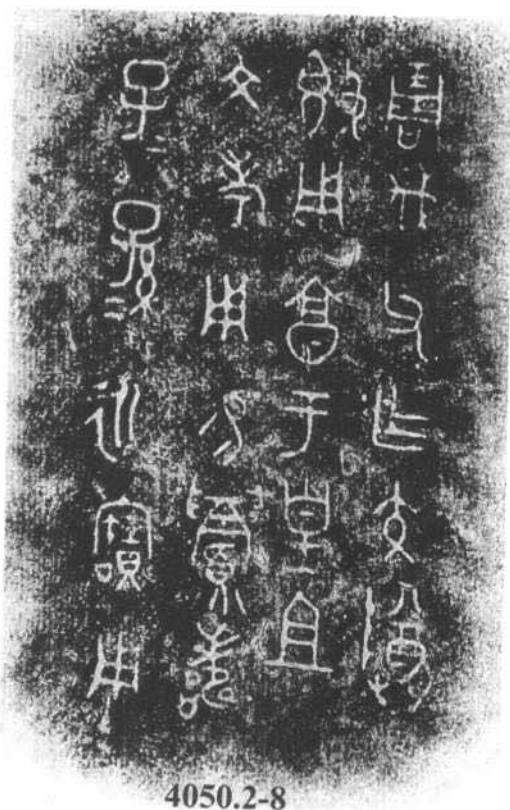 琱父乍交尊
𣪘用享于皇且
文考用易眉壽
子=孫=永寶用
4050.2-8